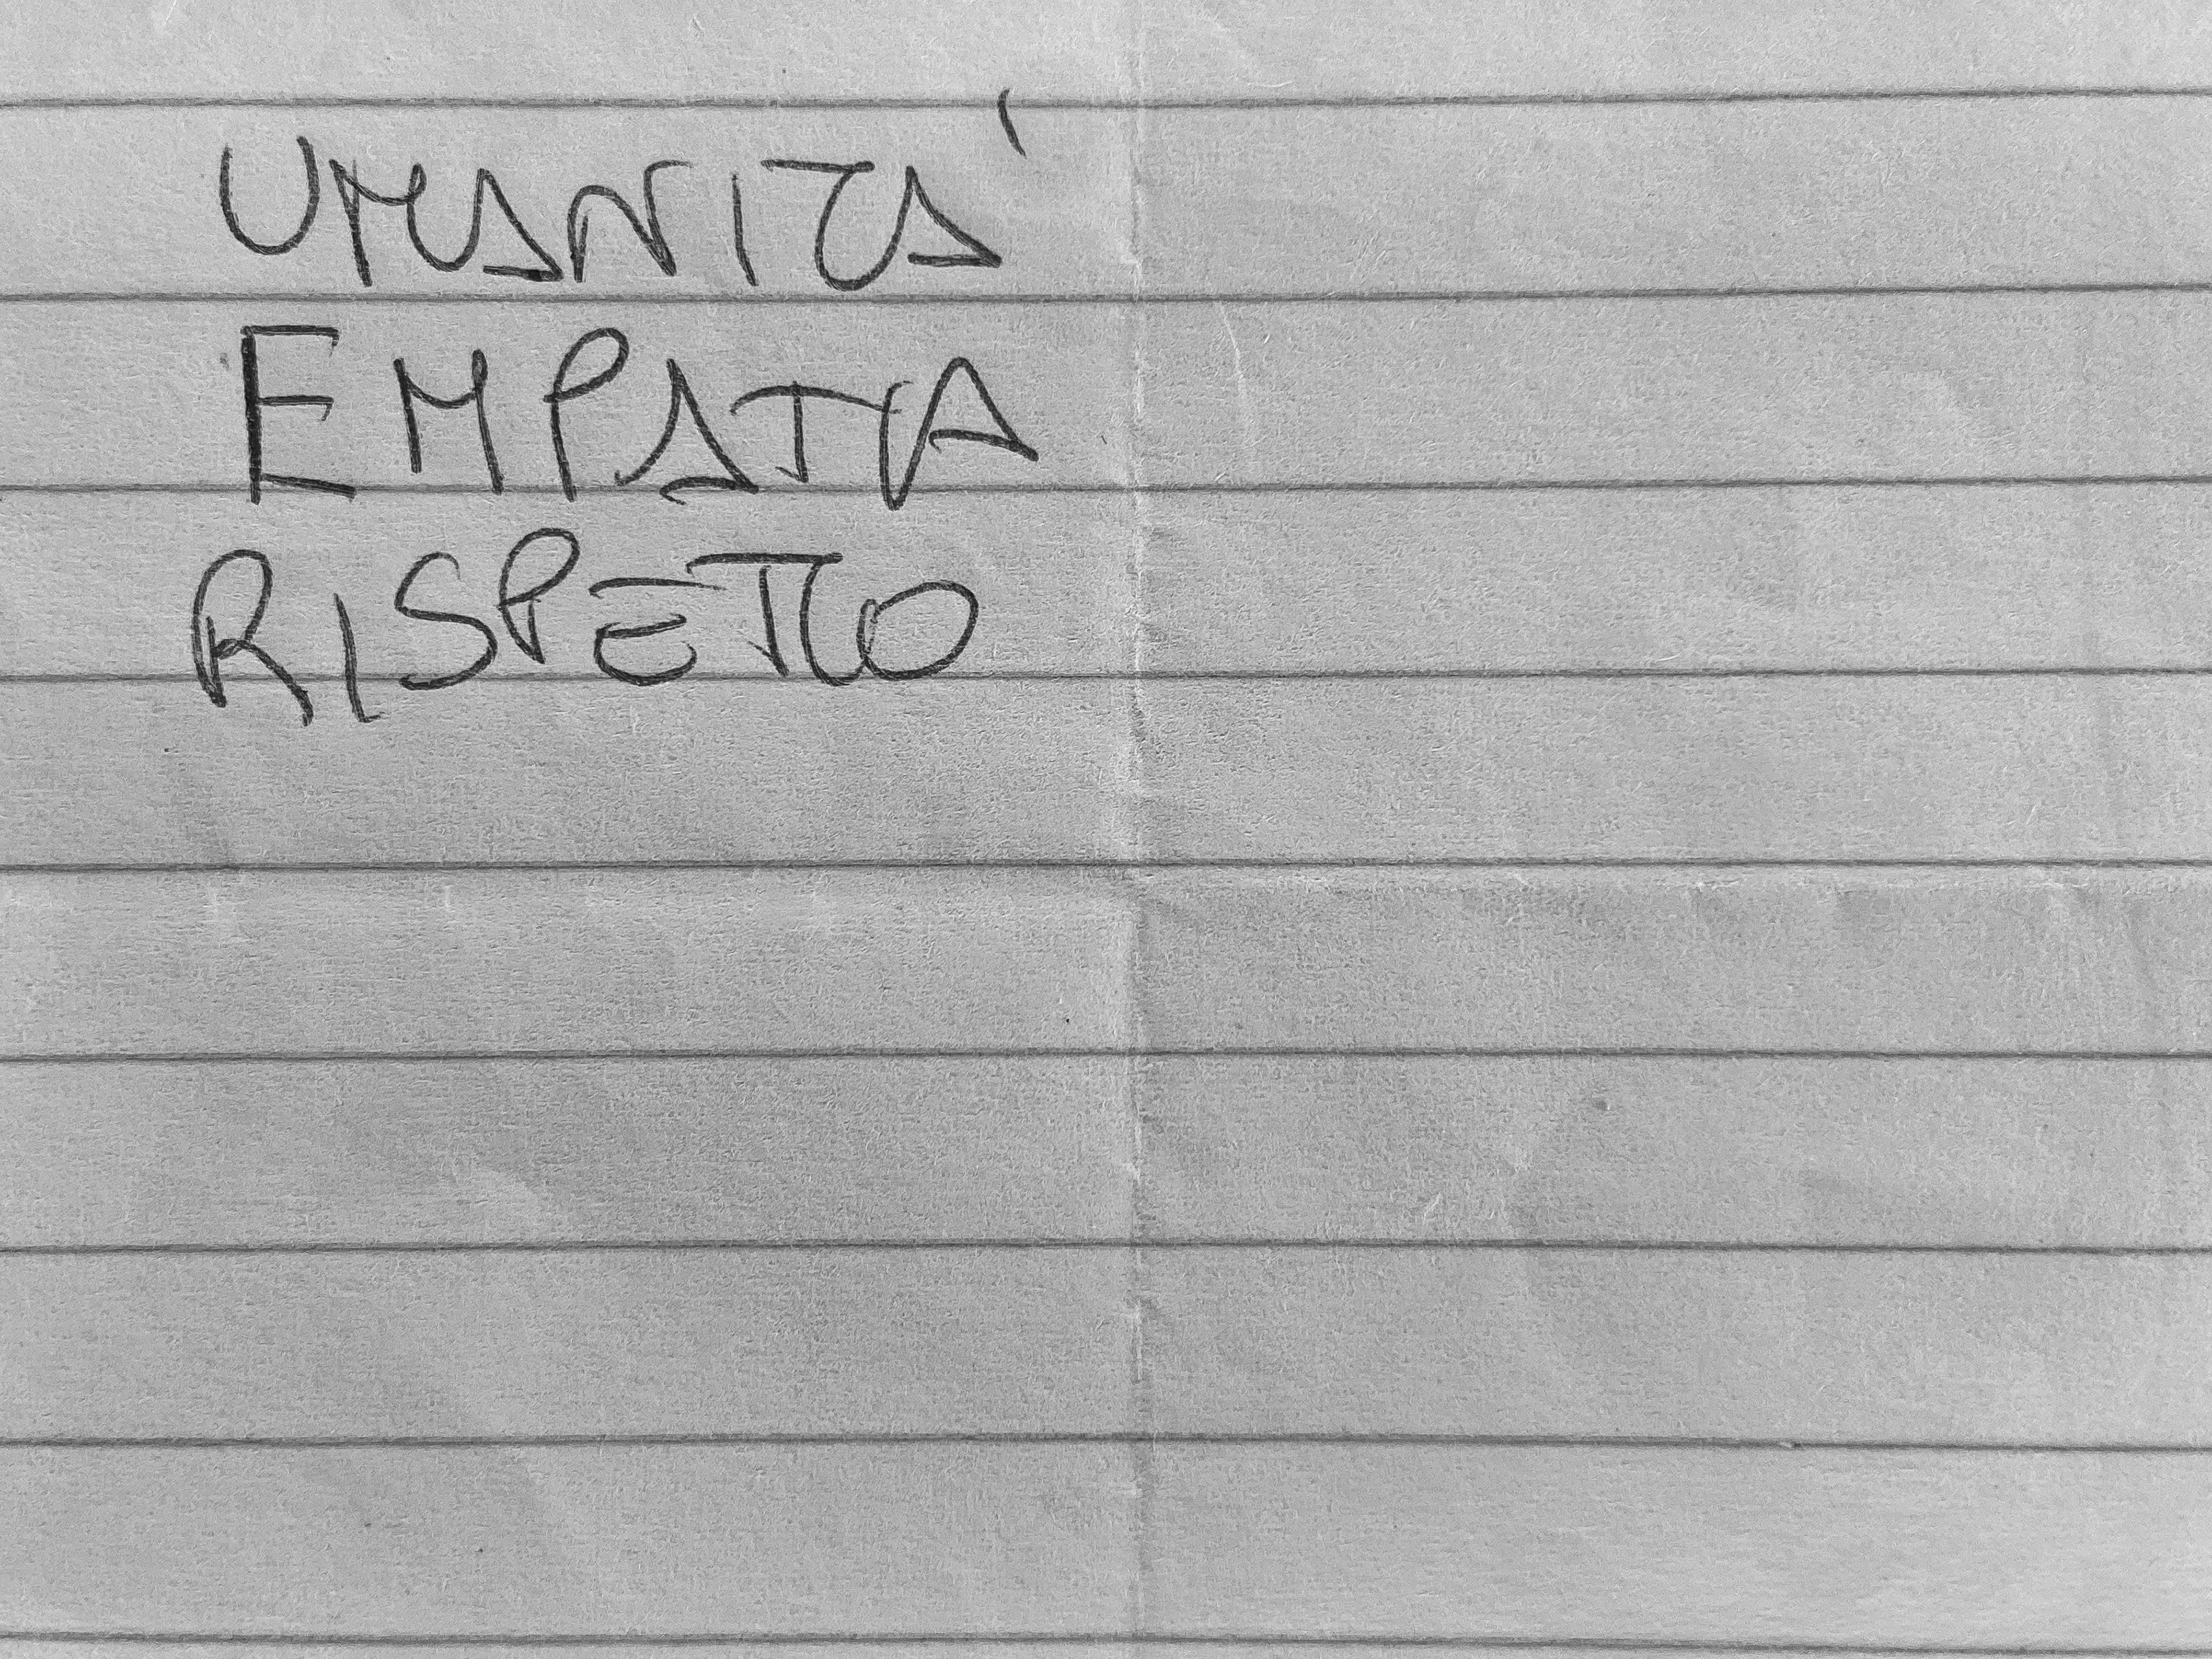 UMANITA'
EMPATIA
RISPETTO